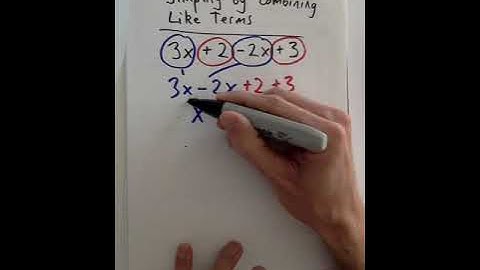 Simplify by Combining
Like Terms
3x +2 -2x +3
3x - 2x +2 +3
x